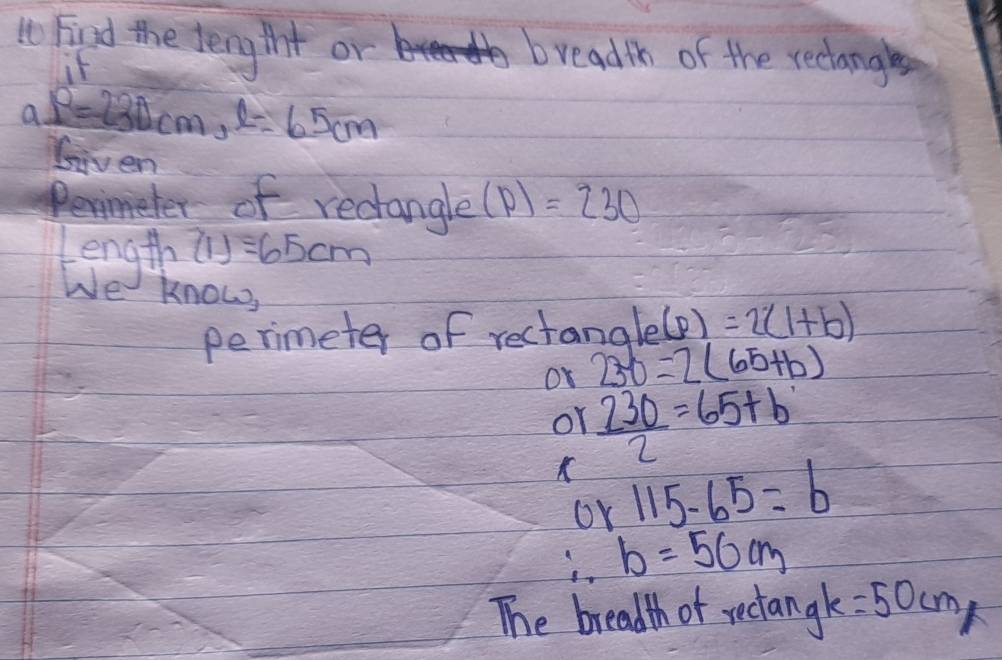 11) Find the lengtht or breadth breadth of the rectangles
if
a. P=230cm, l= 65cm
Given
Perimeter of rectangle(p) = 230
Length (l) =65cm
We know,
perimeter of rectangle(p) = 2(l+b)
or 230 =2(65+b)
or 230/2 =65+b
or 115-65= b
∴ b = 50cm
The breadth of rectangle=50cm